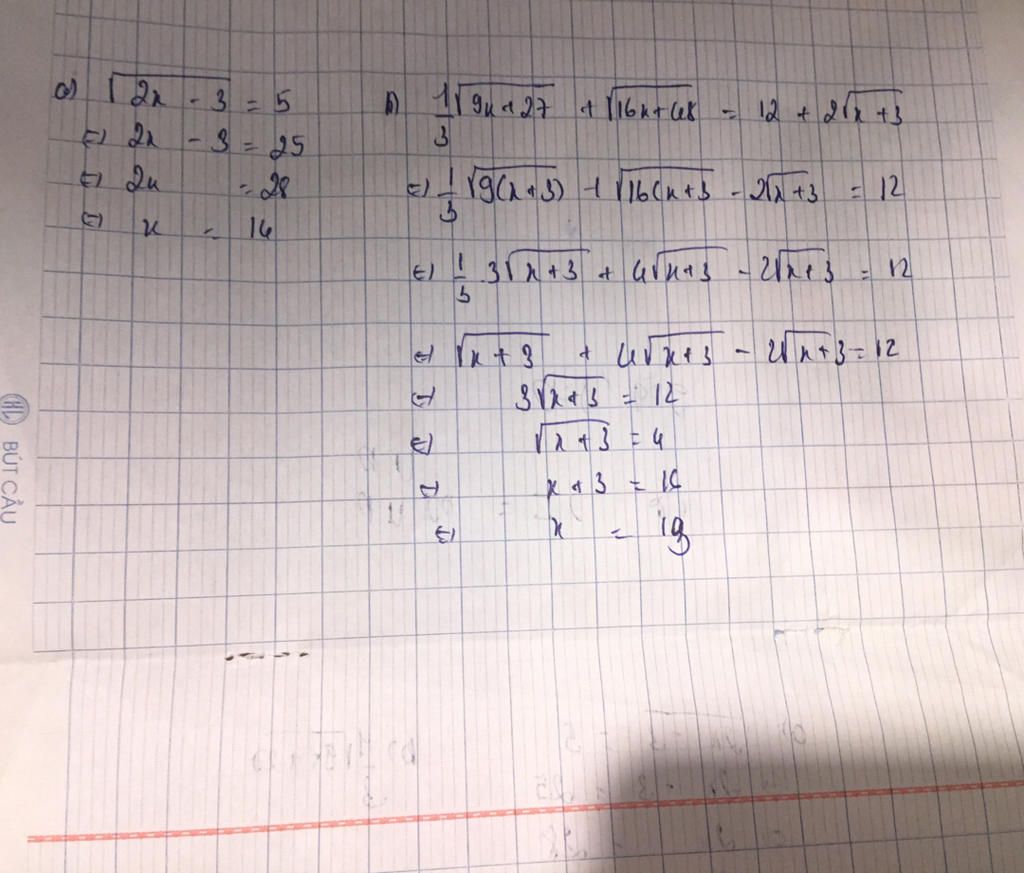 a) √(2x - 3) = 5
⇔ 2x - 3 = 25
⇔ 2x = 28
⇔ x = 14
b) 1/3 √(9x+27) + √(16x+48) = 12 + 2√(x+3)
⇔ 1/3 √(9(x+3)) + √(16(x+3 - 2√(x+3) = 12
⇔ 1/3 . 3√(x+3) + 4√(x+3) - 2√(x+3) = 12
⇔ √(x+3) + 4√(x+3) - 2√(x+3) = 12
⇔ 3√(x+3) = 12
⇔ √(x+3) = 4
⇔ x + 3 = 16
⇔ x = 19
BÚT CẦU